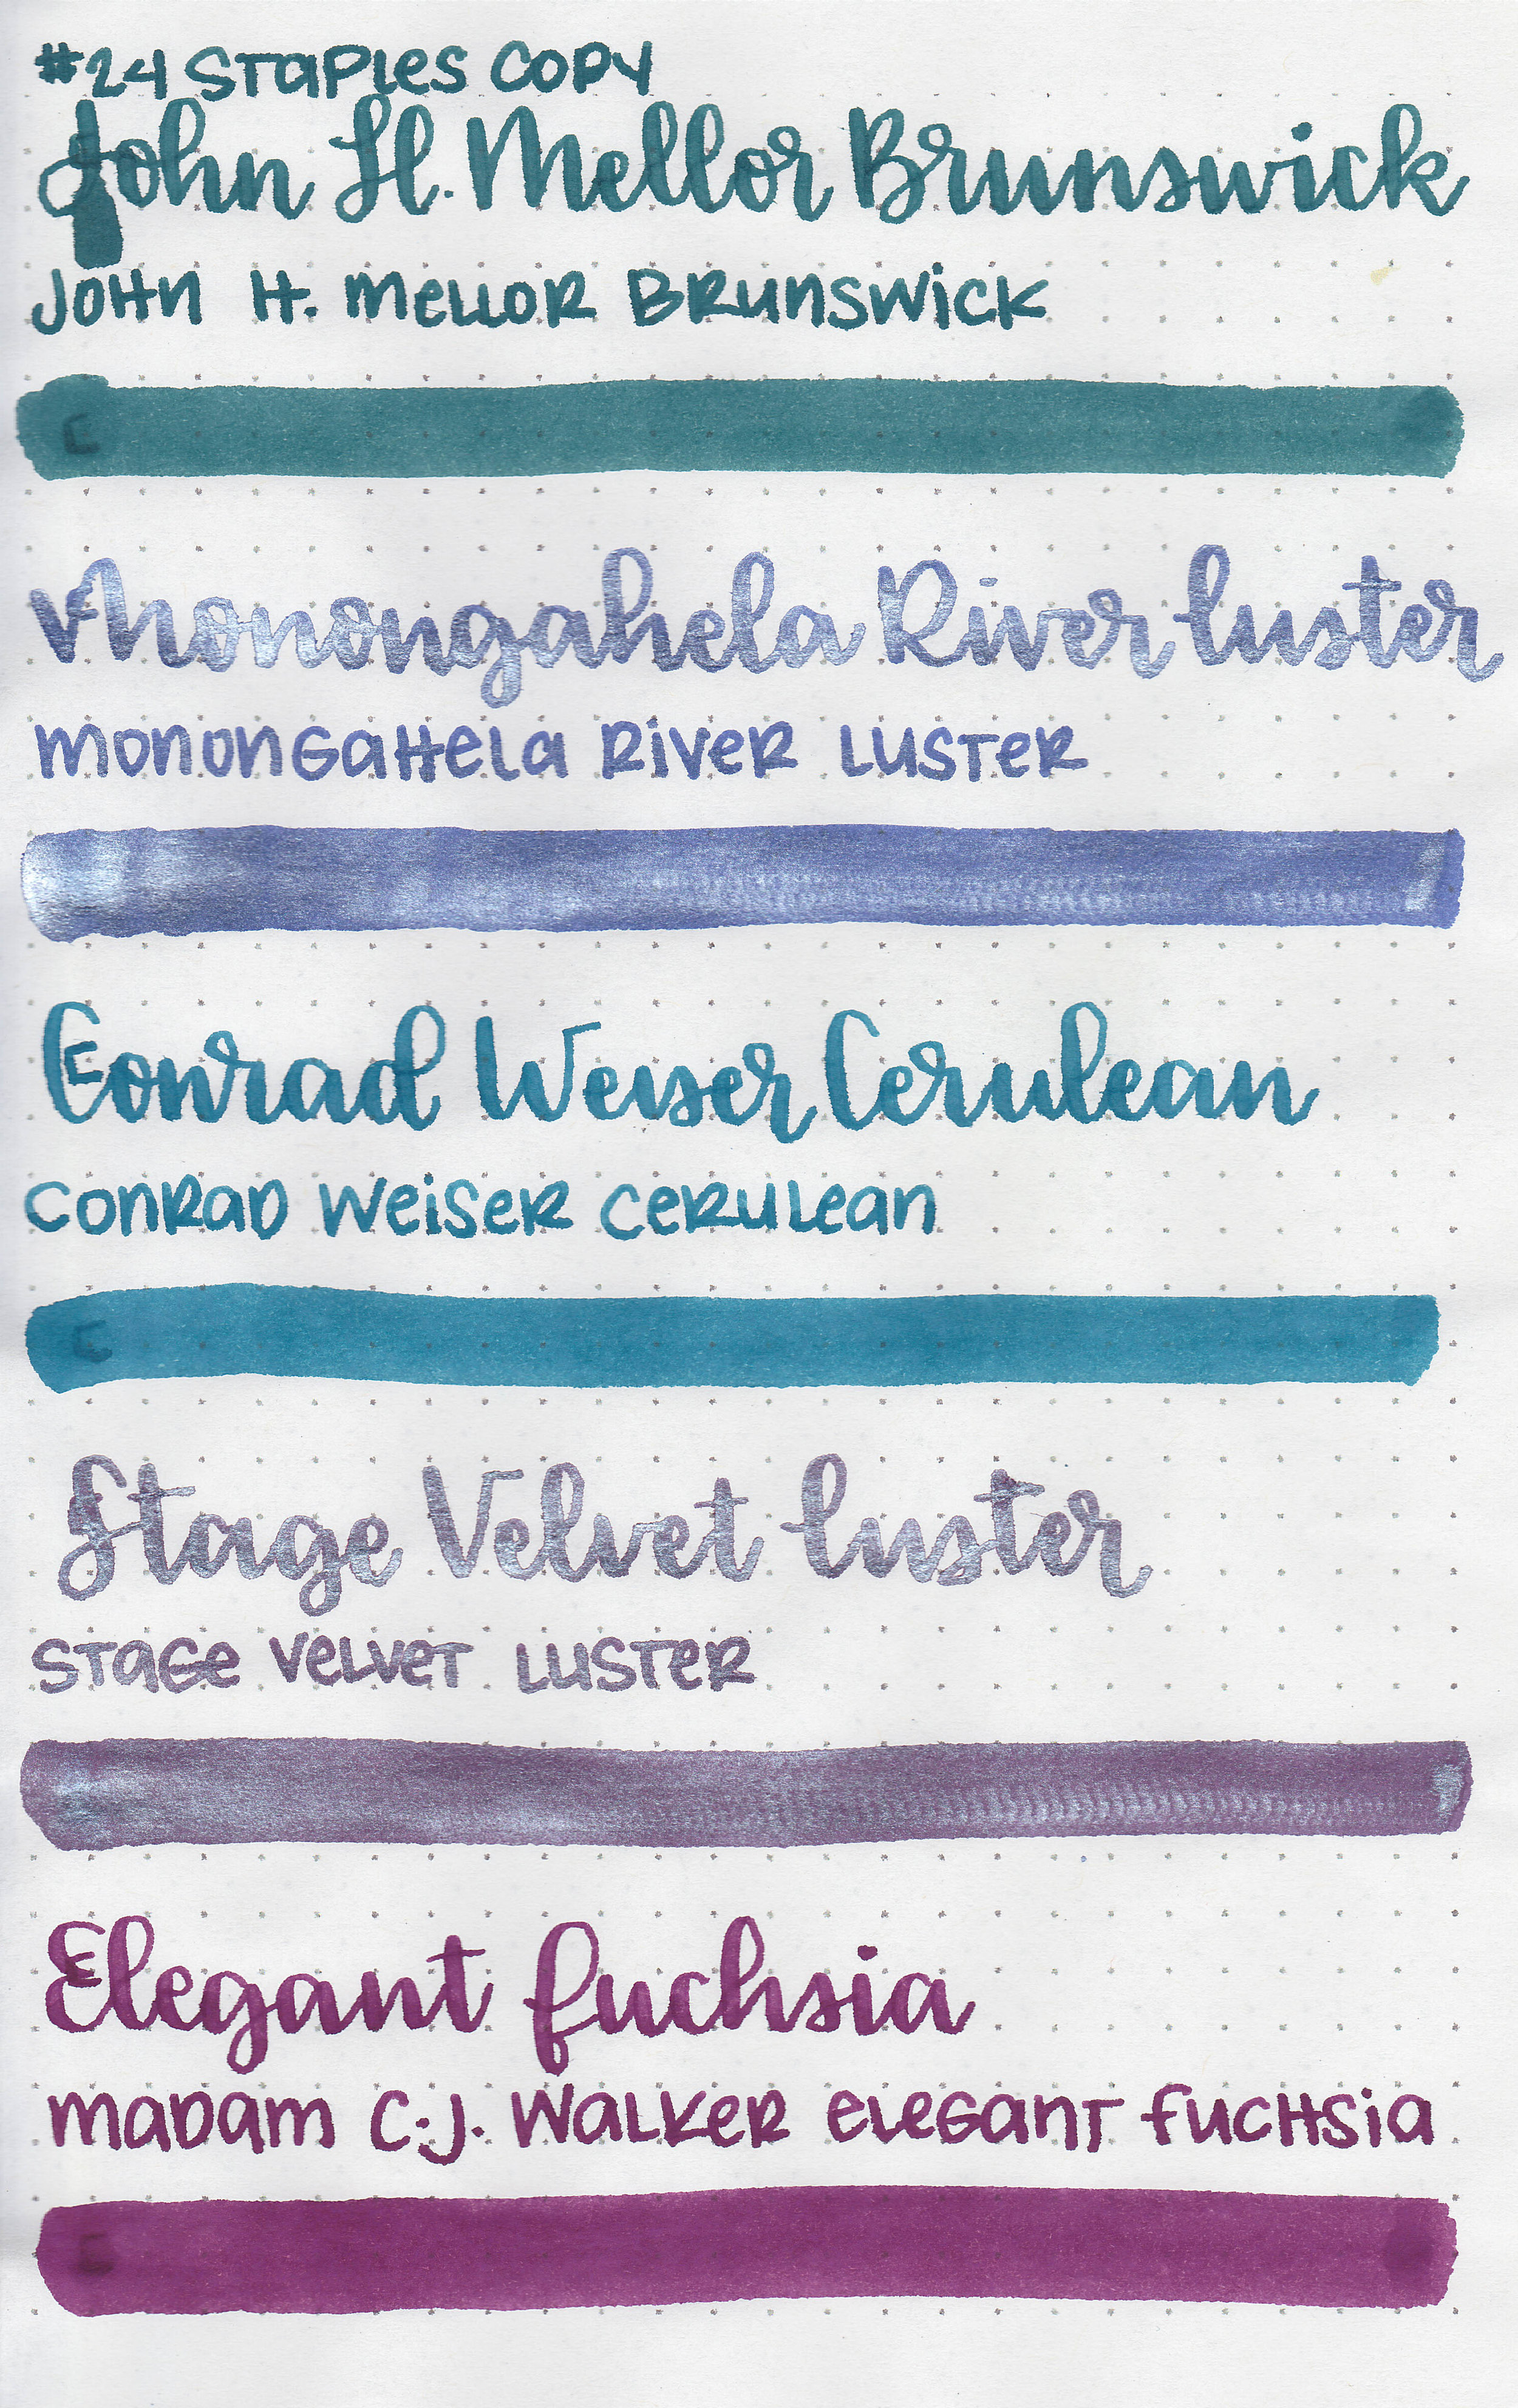 #24 Staples Copy
John H. Mellor Brunswick
John H. Mellor Brunswick
Monongahela River luster
Monongahela River Luster
Conrad Weiser Cerulean
Conrad Weiser Cerulean
Stage Velvet luster
Stage Velvet Luster
Elegant fuchsia
Madam C.J. Walker Elegant Fuchsia